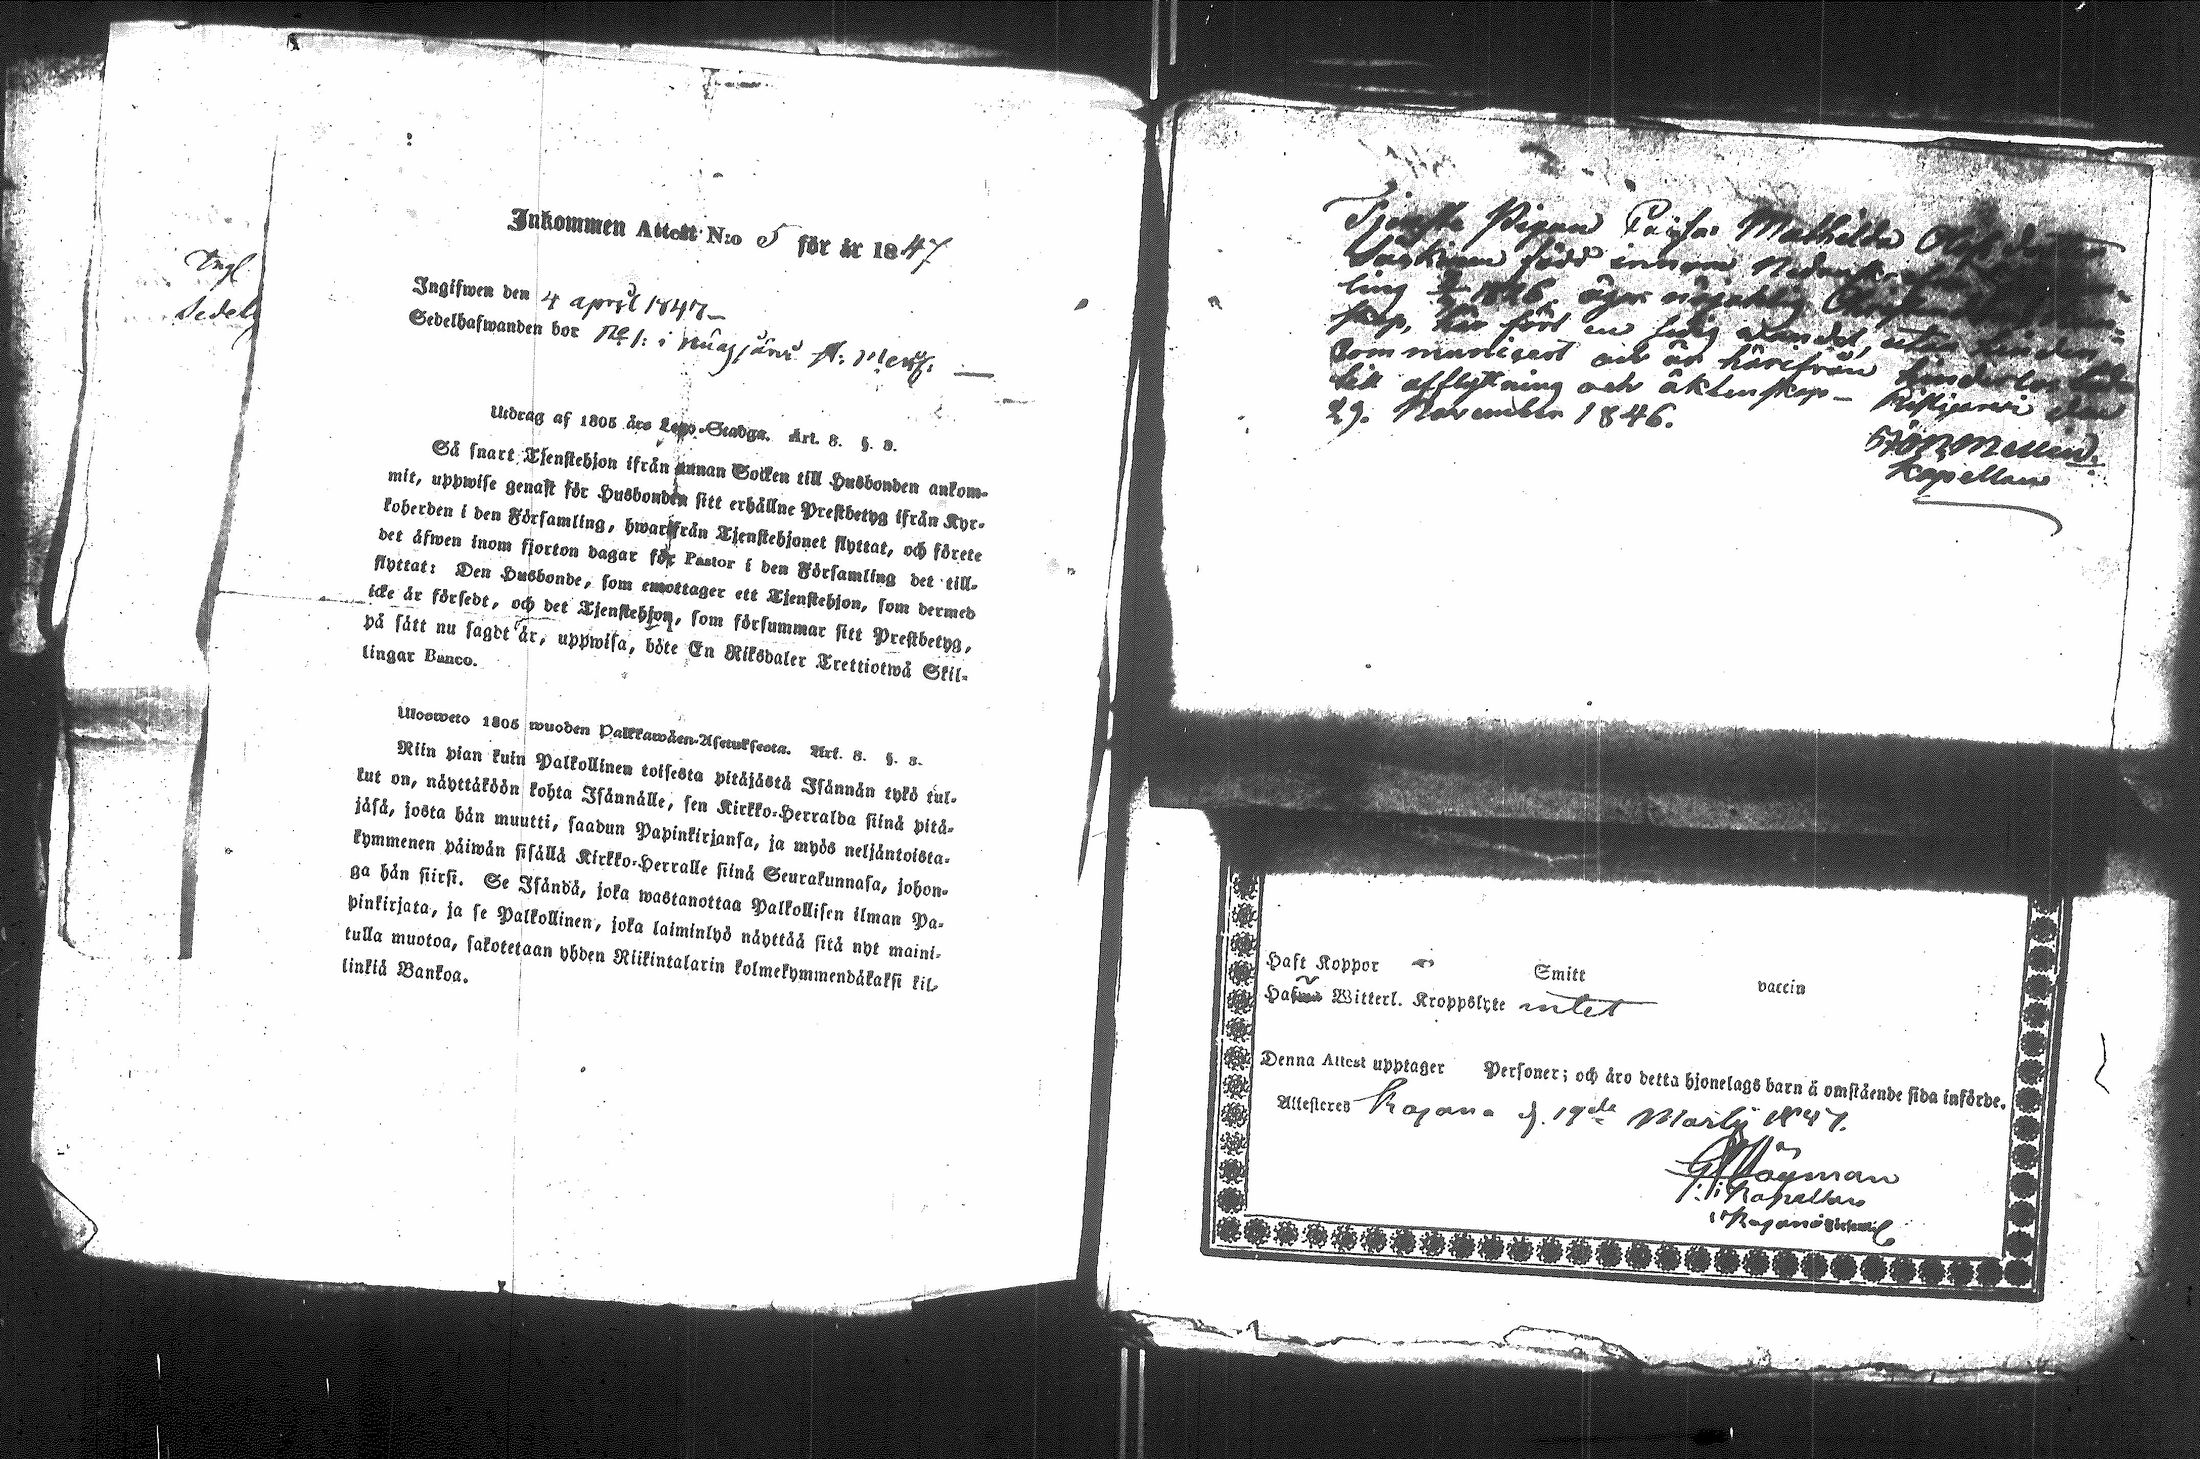 Inkommen Attest N:o 5 för år 1847
Ingifwen den 4 april 1847
Sedelhafwanden bor No 1: i
Utdrag af 1805 års Lego-Stadga. Art. 8. §. 8.
Så snart Tjenstehjon ifrån annan Socken till Husbonden ankom-
mit, uppwise genast för Husbonden sitt erhållne Prestbetyg ifrån Kyr-
koherden i den Församling, hwarifrån Tjenstehjonet flyttat, och förete
det äfwen inom fjorton dagar för Pastor i den Församling det till-
flyttat: Den Husbonde, som emottager ett Tjenstehjon, som dermed
icke är försedt, och det Tjenstehjon, som försummar sitt Prestbetyg,
på sätt nu sagdt är, uppwisa, böte En Riksdaler Trettiotwå Skil-
lingar Banco.
Ulosweto 1805 wuoden Palkkawäen-Asetuksesta. Art. 8. §. 8.
Niin pian kuin Palkollinen toisesta pitäjästä Isännän tykö tul-
kut on, näyttäköön kohta Isännälle, sen Kirkko-Herralda siinä pitä-
jäsä, josta hän muutti, saadun Papinkirjansa, ja myös neljäntoista-
kymmenen päiwän sisällä Kirkko-Herralle siinä Seurakunnasa, johon-
ga hän siirsi. Se Isändä, joka wastanottaa Palkollisen ilman Pa-
pinkirjata, ja se Palkollinen, joka laiminlyö näyttää sitä nyt maini-
tulla muotoa, sakotetaan yhden Riikintalarin kolmekymmendäkaksi kil-
linkiä Bankoa.
Tjenste Pigan Mathilda Olofs dotter
född innom
ling 1826, äger nöjaktig
skap, har fört en wandel, utan hinder
Communicerat och är härifrån hinderlös
till afflyttning och äktenskap – Ristijärwi den
29. November 1846.
Kapellan
Haft Koppor Smitt vaccin
Witterl. Kroppslyte intet
Denna Attest upptager Personer; och äro detta hjonelags barn å omstående sida införde.
Attesteres Kajana d. 19de Martii 1847.
Kapellan